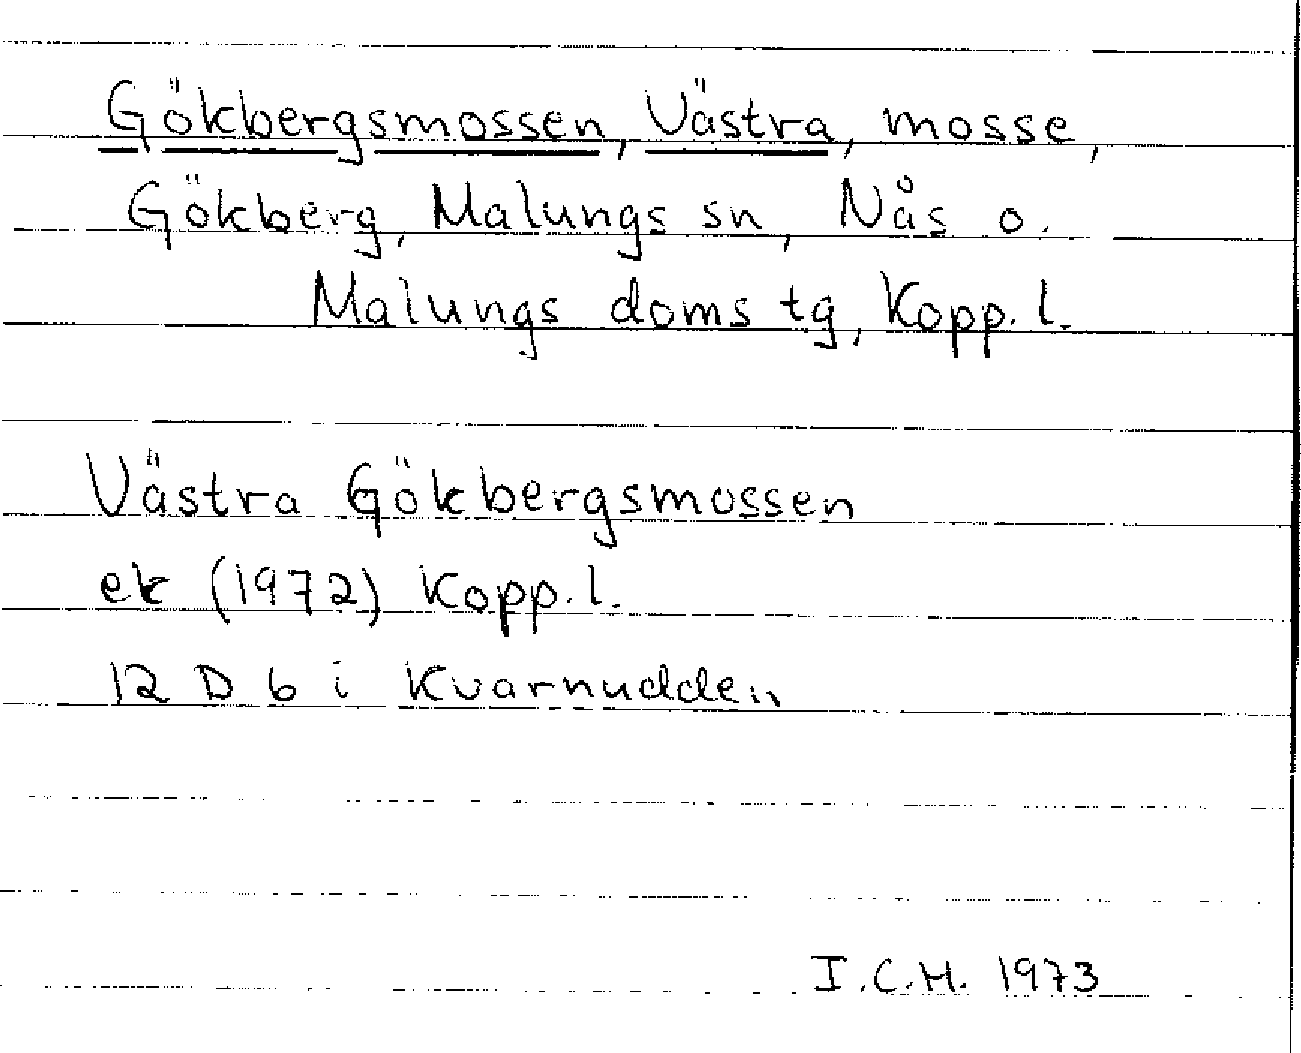 Gökbergsmossen, Västra, mosse,
Gökberg, Malungs sn, Nås o.
Malungs doms tg, Kopp. l.
Västra Gökbergsmossen
ek (1972) Kopp. l.
12 D 6 i Kvarnudden
I.C.H. 1973